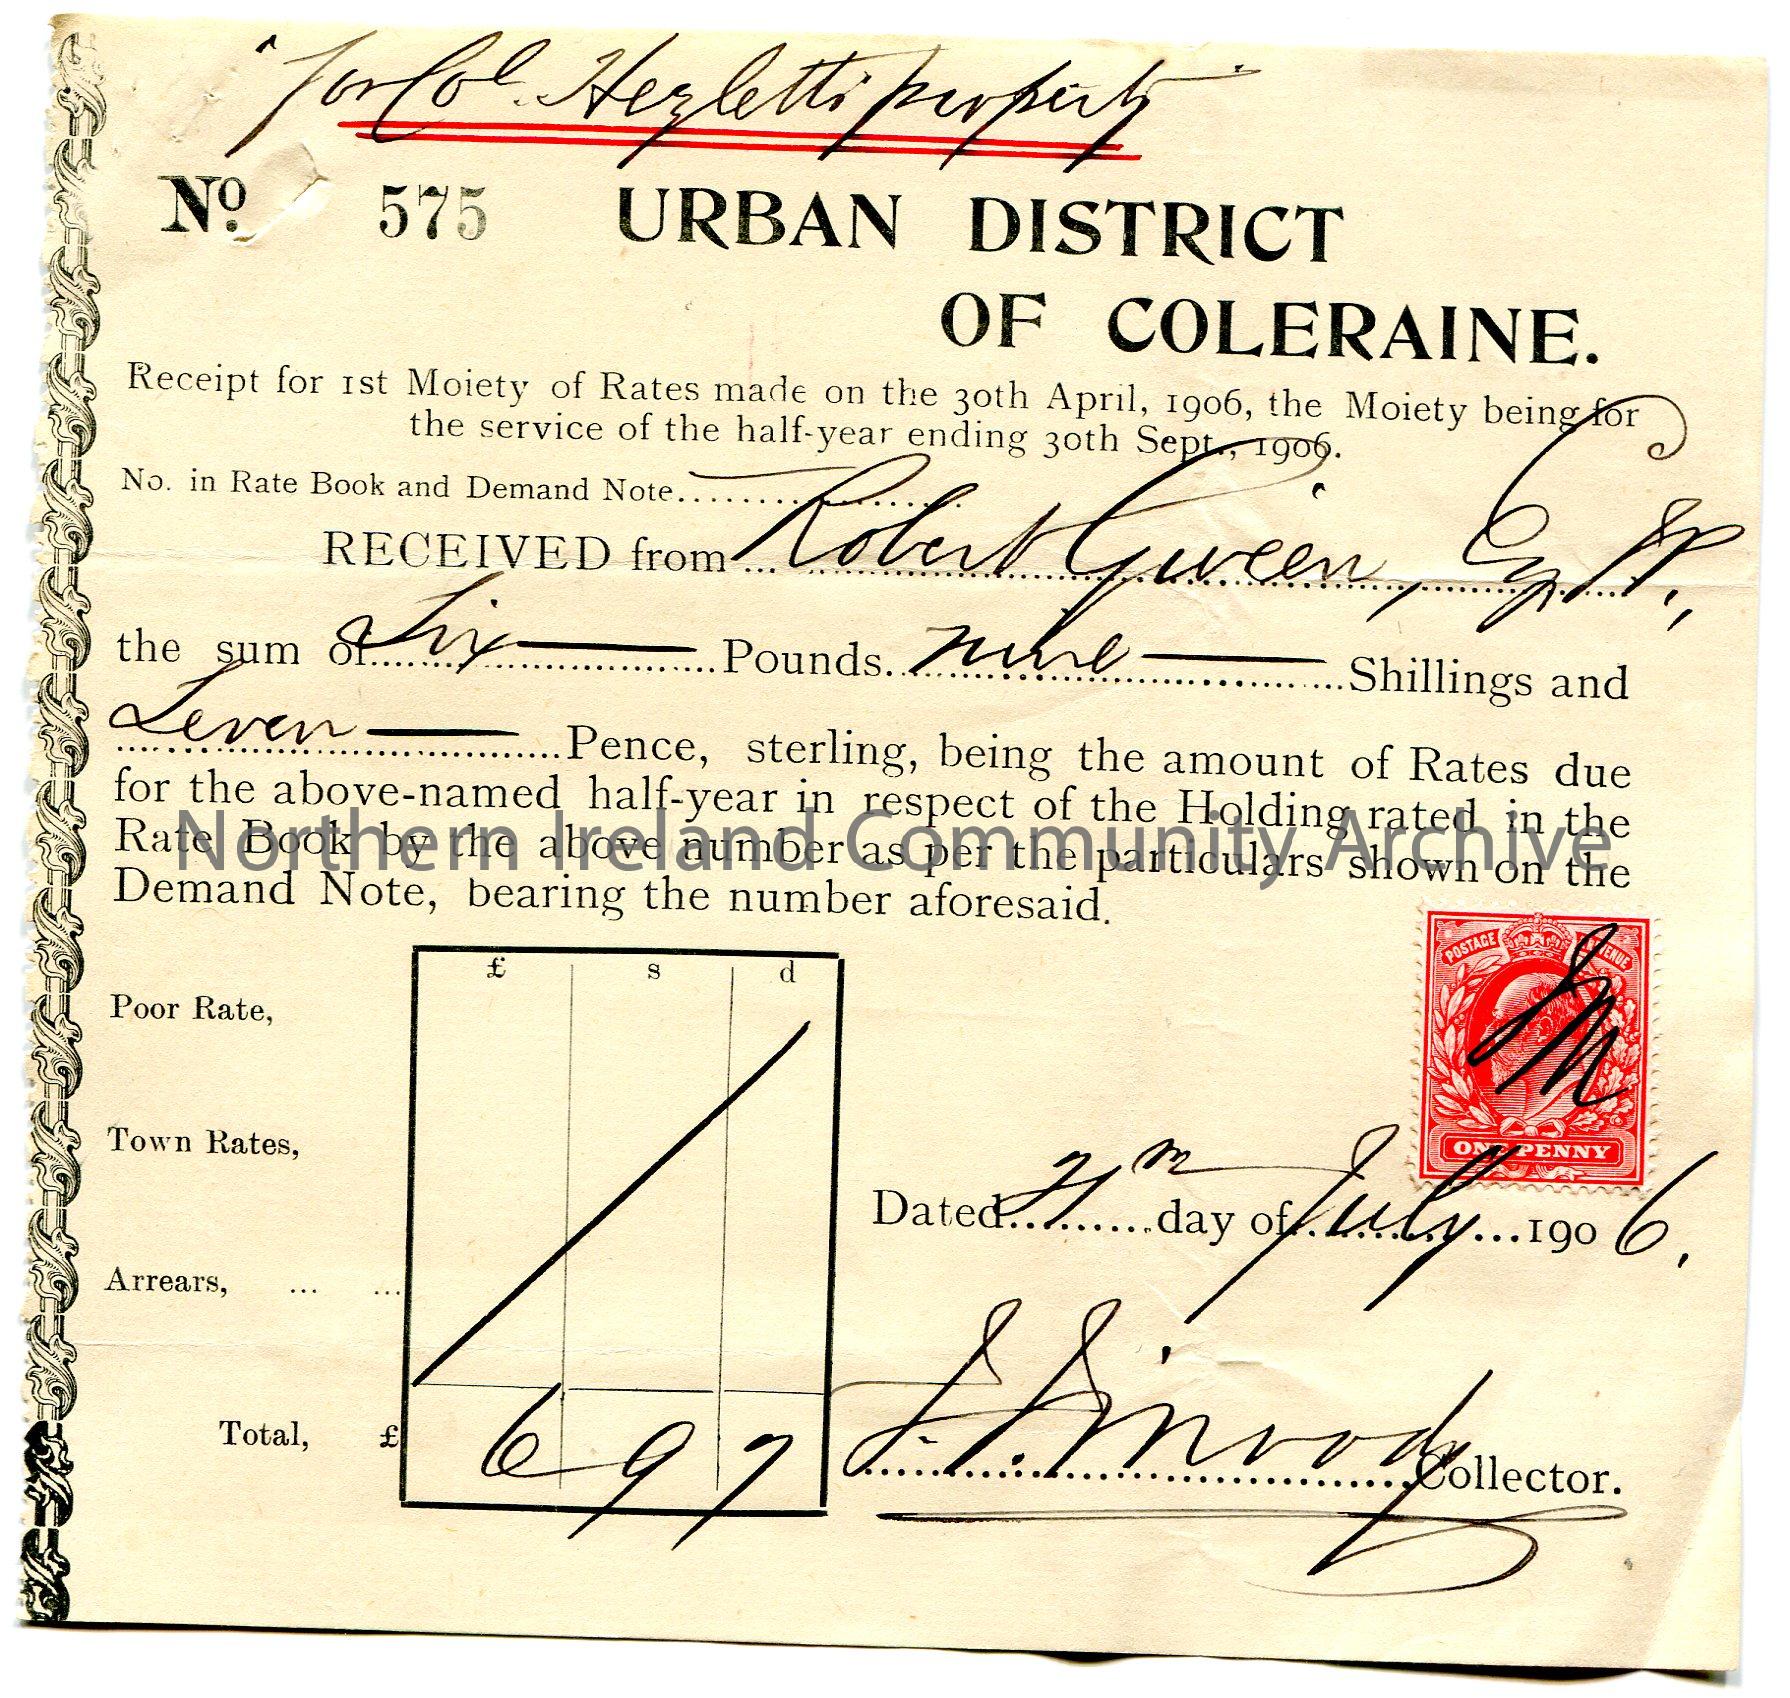 "for Col. Hezletts property"
No. 575 URBAN DISTRICT
OF COLERAINE.
Receipt for 1st Moiety of Rates made on the 30th April, 1906, the Moiety being for
the service of the half-year ending 30th Sept., 1906.
No. in Rate Book and Demand Note
RECEIVED from Robert Given, Esq JP.,
the sum of Six Pounds. nine Shillings and
Seven Pence, sterling, being the amount of Rates due
for the above-named half-year in respect of the Holding rated in the
Rate Book by the above number as per the particulars shown on the
Demand Note, bearing the number aforesaid.
Northern Ireland Community Archive
£ s d
Poor Rate,
Town Rates,
Arrears, ... ...
Total, £ 6 9 7
POSTAGE REVENUE
ONE PENNY
Dated day of July 1906.
Moody Collector.